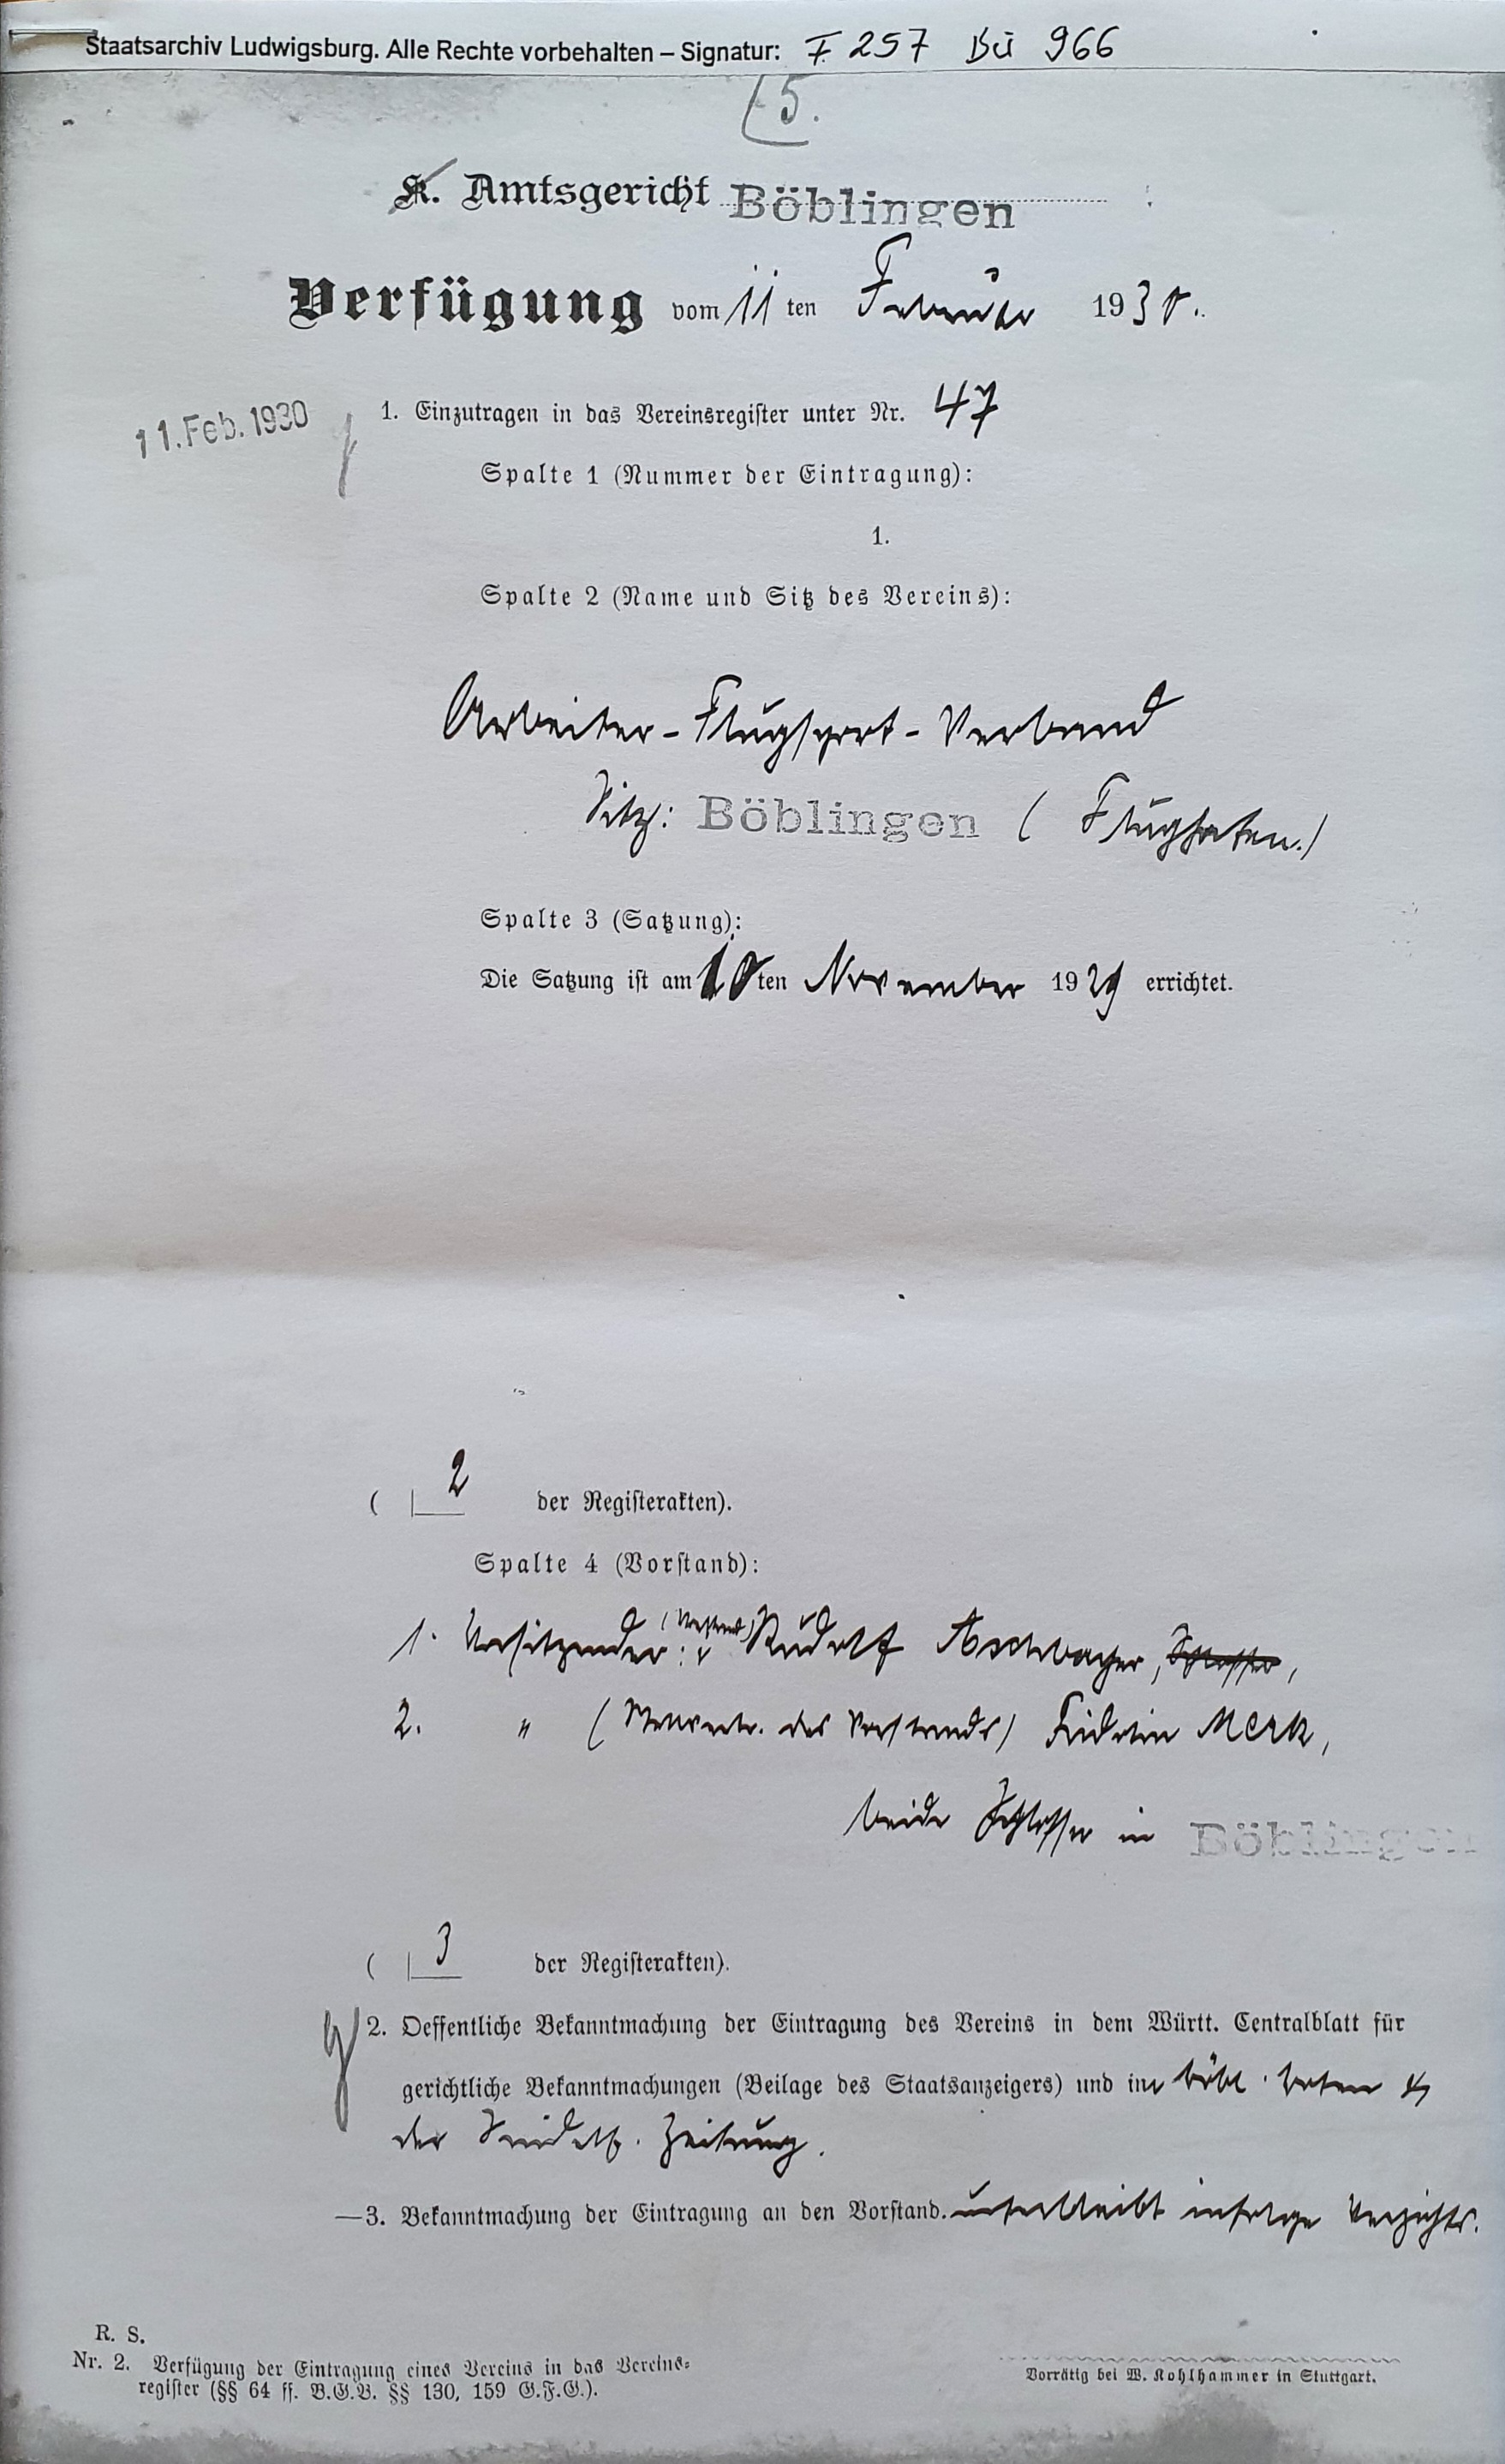 Staatsarchiv Ludwigsburg. Alle Rechte vorbehalten – Signatur: F 257 Bü 966
5.
K. Amtsgericht Böblingen
Verfügung vom 11 ten Februar 1930.
11. Feb. 1930
1. Einzutragen in das Vereinsregister unter Nr. 47
Spalte 1 (Nummer der Eintragung):
1.
Spalte 2 (Name und Sitz des Vereins):
Arbeiter-Flugsport-Verband
Sitz: Böblingen (Flughafen.)
Spalte 3 (Satzung):
Die Satzung ist am 10ten November 1929 errichtet.
( 2 der Registerakten).
Spalte 4 (Vorstand):
1. Vorsitzender: (Vorstand) Rudolf Aschbayer, Schlosser,
2. " (Stellvertr. des Vorstands) Fidelin Merk,
beide Schlosser in Böblingen
( 3 der Registerakten).
2. Oeffentliche Bekanntmachung der Eintragung des Vereins in dem Württ. Centralblatt für
gerichtliche Bekanntmachungen (Beilage des Staatsanzeigers) und im Böbl. Boten &
der Sindelf. Zeitung.
—3. Bekanntmachung der Eintragung an den Vorstand. unterbleibt infolge Verzichts.
R. S.
Nr. 2. Verfügung der Eintragung eines Vereins in das Vereins-
register (§§ 64 ff. B.G.B. §§ 130, 159 G.F.G.).
Vorrätig bei W. Kohlhammer in Stuttgart.